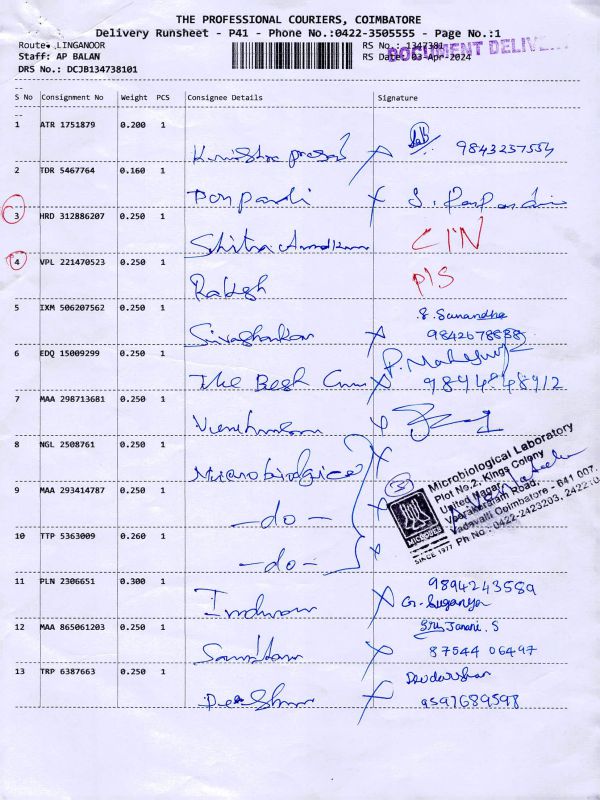 THE PROFESSIONAL COURIERS, COIMBATORE
Delivery Runsheet - P41 - Phone No.:0422-3505555 - Page No.:1
Route: LINGANOOR RS No.: 1347381
Staff: AP BALAN RS Date: 03-Apr-2024
DOCUMENT DELIV
DRS No.: DCJB134738101
S No Consignment No Weight PCS Consignee Details Signature
1 ATR 1751879 0.200 1
9843237554
2 TDR 5467764 0.160 1
Ponpandi
3 HRD 312886207 0.250 1
CIN
4 VPL 221470523 0.250 1
Rakesh PIS
5 IXM 506207562 0.250 1
S. Sunandha
Sivashankar
6 EDQ 15009299 0.250 1
The Best
7 MAA 298713681 0.250 1
8 NGL 2508761 0.250 1
9 MAA 293414787 0.250 1
-do-
10 TTP 5363009 0.260 1
-do-
Microbiological Laboratory
Plot No.2, Kings Colony
United Nagar,
Veerakeralam Road,
Vadavalli Coimbatore - 641 007.
Ph No : 0422-2423203, 242210
MICROLAB
SINCE 1977
11 PLN 2306651 0.300 1
9894243589
G. Suganya
12 MAA 865061203 0.250 1
Sri Janani. S
87544 06497
13 TRP 6387663 0.250 1
9597689598